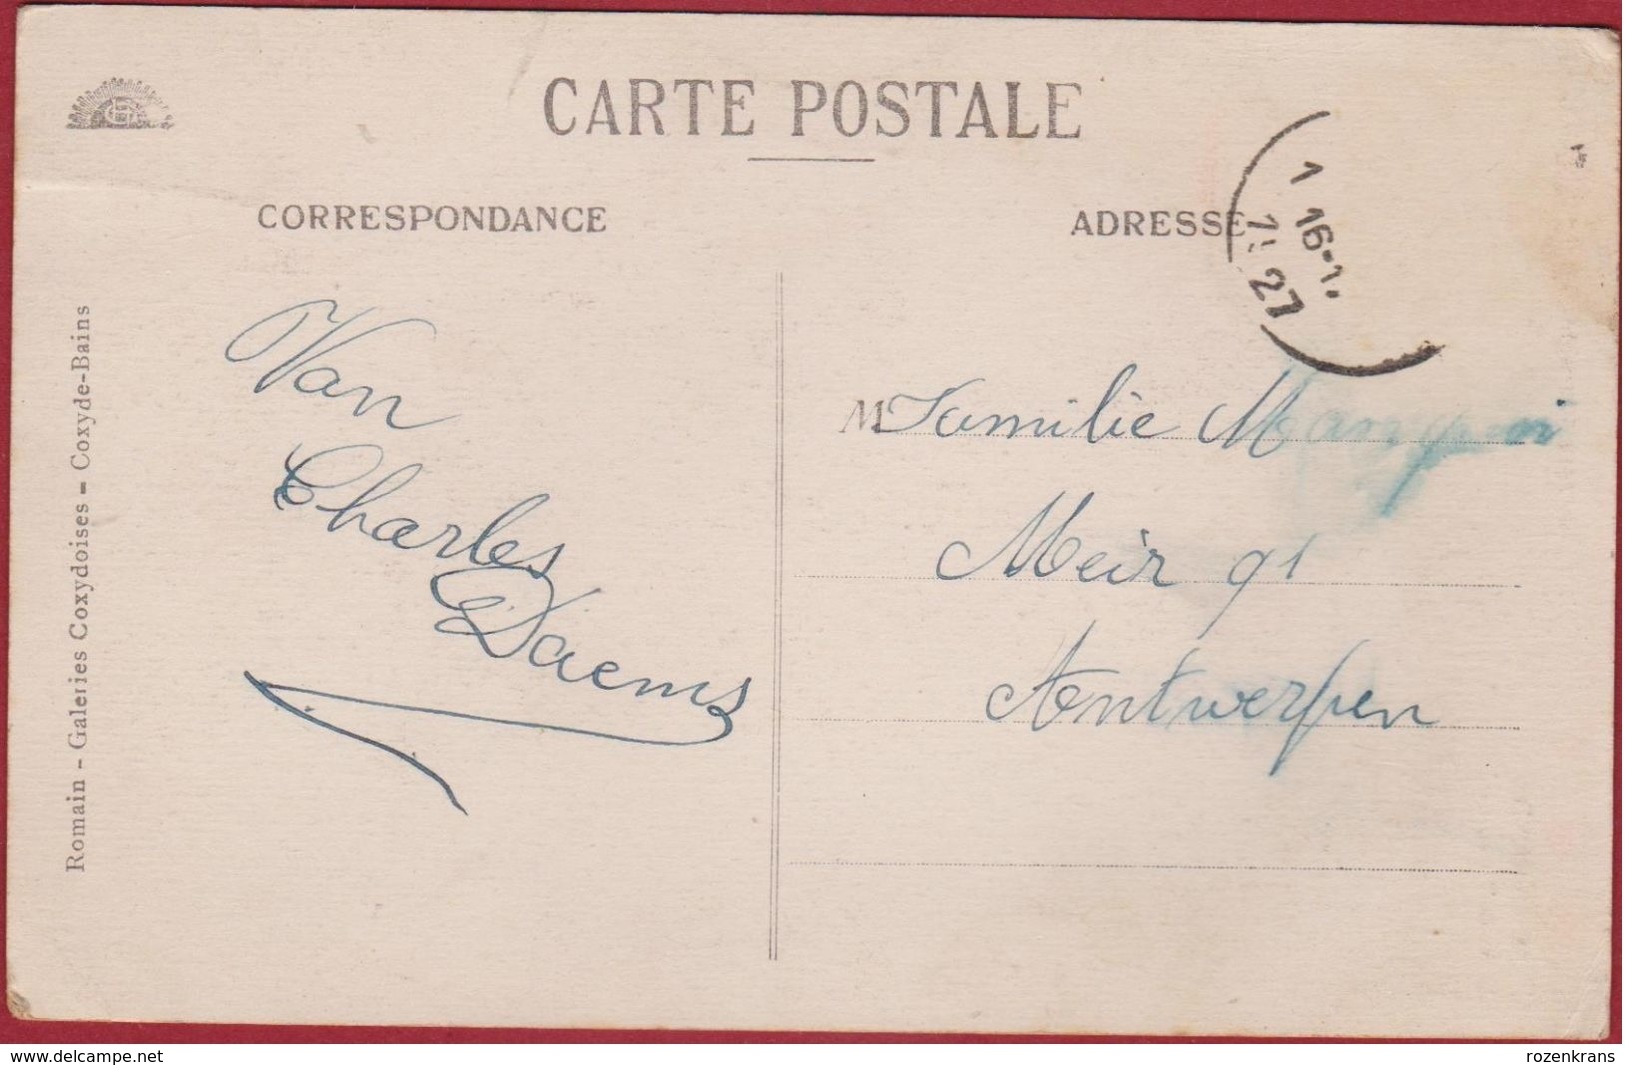 CARTE POSTALE
CORRESPONDANCE
ADRESSE
1 16-1
27
Romain - Galeries Coxydoises - Coxyde-Bains
Van
Charles
Daems
M Familie
Meir 91
Antwerpen
delcampe.net
rozenkrans